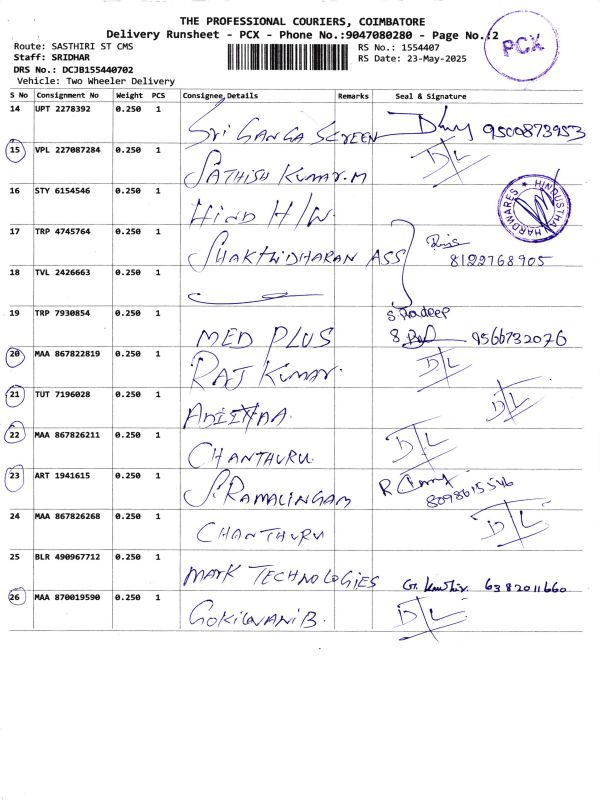 THE PROFESSIONAL COURIERS, COIMBATORE
Delivery Runsheet - PCX - Phone No.:9047080280 - Page No.:2
PCX
Route: SASTHIRI ST CMS
RS No.: 1554407
Staff: SRIDHAR
RS Date: 23-May-2025
DRS No.: DCJB155440702
Vehicle: Two Wheeler Delivery
S No Consignment No Weight PCS Consignee Details Remarks Seal & Signature
14 UPT 2278392 0.250 1 SRI GANGA SCREEN 9500873953
15 VPL 227087284 0.250 1 SATHISH KUMAR.M D/L
16 STY 6154546 0.250 1 HIND H/W. HINDUSTHAN HARDWARES
17 TRP 4745764 0.250 1 SHAKTHIDHARAN ASS 8122768905
18 TVL 2426663 0.250 1
19 TRP 7930854 0.250 1 MED PLUS S. Pradeep 9566732076
20 MAA 867822819 0.250 1 RAJ KUMAR. D/L
21 TUT 7196028 0.250 1 D/L
22 MAA 867826211 0.250 1 CHANTHURU. D/L
23 ART 1941615 0.250 1 S.RAMALINGAM 8098615546
24 MAA 867826268 0.250 1 CHANTHURU D/L
25 BLR 490967712 0.250 1 MARK TECHNOLOGIES 6382011660
26 MAA 870019590 0.250 1 GOKILAVANI B. D/L